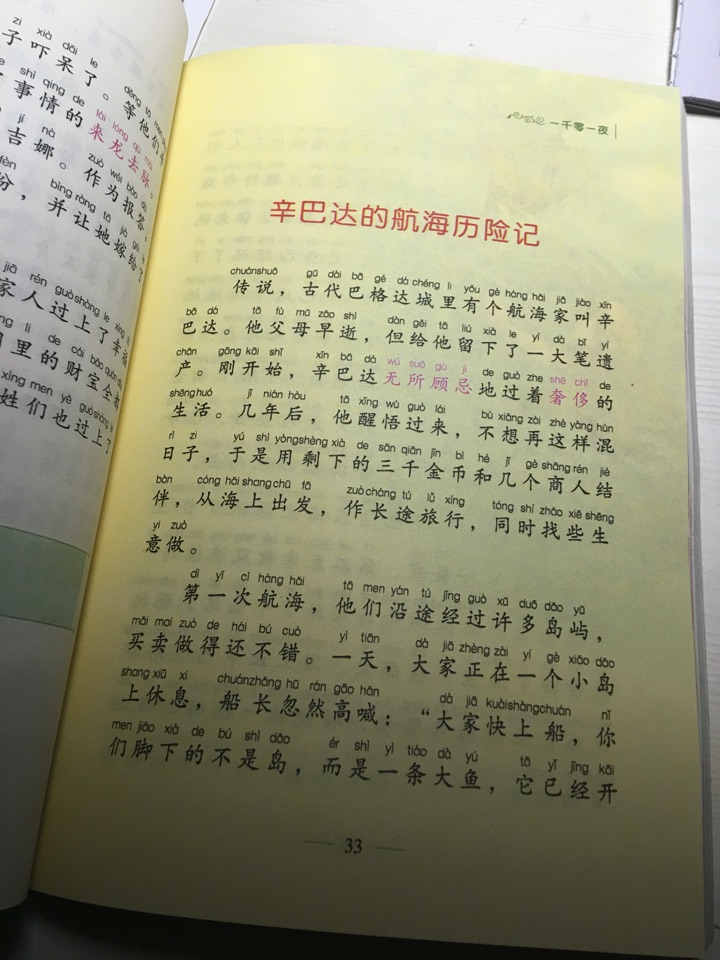 zi xià dāi le děng tā men
子吓呆了。等他们
shì qing de lái lóng qù mài
事情的来龙去脉。
jí nà zuò wéi bào dá
吉娜。作为报答，
fèn bìng ràng tā jià gěi
份，并让她嫁给了
jiā rén guò shàng le
家人过上了
li de cái bǎo quán
里的财宝全
xìng men yě guò shàng le
姓们也过上了
一千零一夜
辛巴达的航海历险记
chuánshuō gǔ dài bā gé dá chéng li yǒu gè háng hǎi jiā jiào xīn
传说，古代巴格达城里有个航海家叫辛
bā dá tā fù mǔ zǎo shì dàn gěi tā liú xià le yí dà bǐ yí
巴达。他父母早逝，但给他留下了一大笔遗
chǎn gāng kāi shǐ xīn bā dá wú suǒ gù jì de guò zhe shē chǐ de
产。刚开始，辛巴达无所顾忌地过着奢侈的
shēng huó jǐ nián hòu tā xǐng wù guò lái bù xiǎng zài zhè yàng hùn
生活。几年后，他醒悟过来，不想再这样混
rì zi yú shì yòng shèng xià de sān qiān jīn bì hé jǐ gè shāng rén jié
日子，于是用剩下的三千金币和几个商人结
bàn cóng hǎi shang chū fā zuò cháng tú lǚ xíng tóng shí zhǎo xiē shēng
伴，从海上出发，作长途旅行，同时找些生
yi zuò
意做。
dì yī cì háng hǎi tā men yán tú jīng guò xǔ duō dǎo yǔ
第一次航海，他们沿途经过许多岛屿，
mǎi mai zuò de hái bú cuò yì tiān dà jiā zhèng zài yí gè xiǎo dǎo
买卖做得还不错。一天，大家正在一个小岛
shang xiū xi chuánzhǎng hū rán gāo hǎn dà jiā kuài shàng chuán nǐ
上休息，船长忽然高喊：“大家快上船，你
men jiǎo xià de bú shì dǎo ér shì yì tiáo dà yú tā yǐ jīng kāi
们脚下的不是岛，而是一条大鱼，它已经开
33